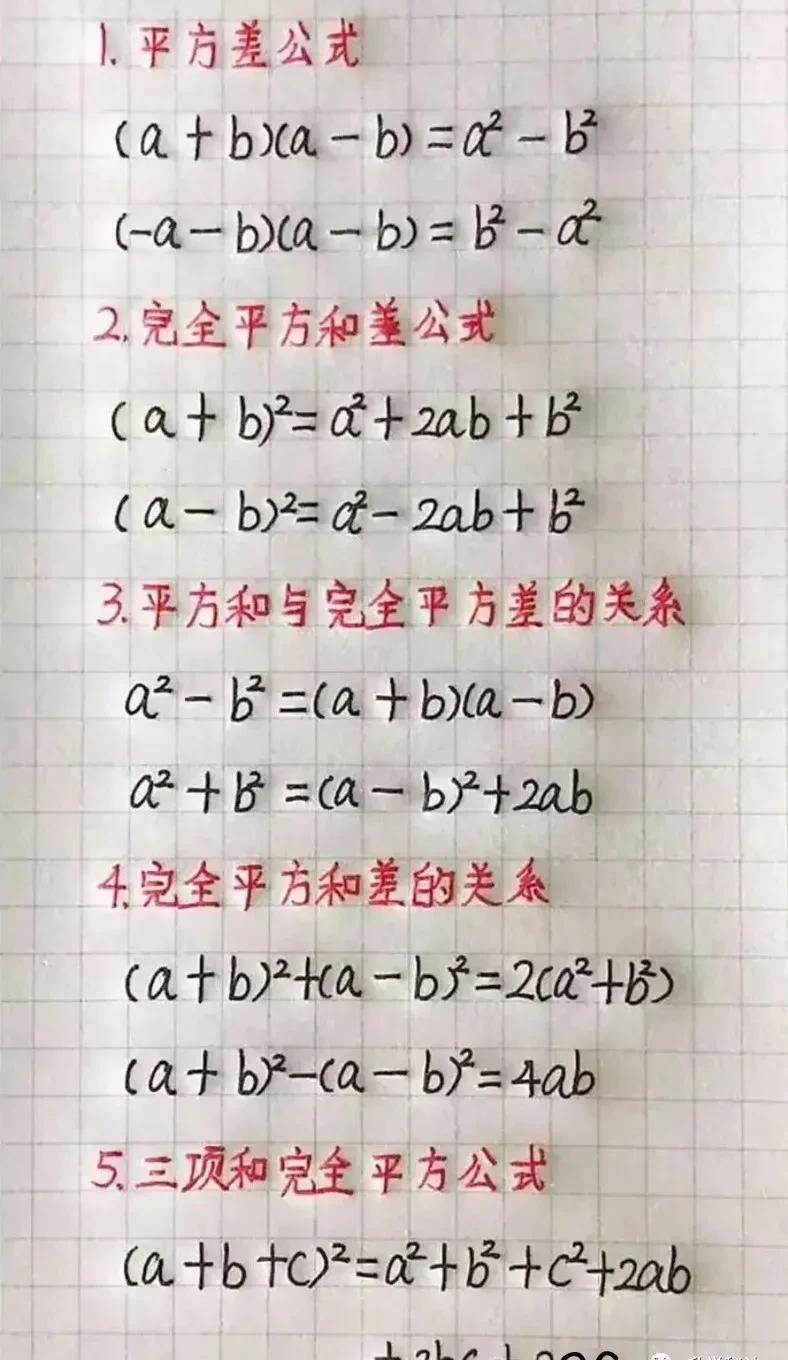 1. 平方差公式
(a+b)(a-b)=a²-b²
(-a-b)(a-b)=b²-a²
2. 完全平方和差公式
(a+b)²=a²+2ab+b²
(a-b)²=a²-2ab+b²
3. 平方和与完全平方差的关系
a²-b²=(a+b)(a-b)
a²+b²=(a-b)²+2ab
4. 完全平方和差的关系
(a+b)²+(a-b)²=2(a²+b²)
(a+b)²-(a-b)²=4ab
5. 三项和完全平方公式
(a+b+c)²=a²+b²+c²+2ab